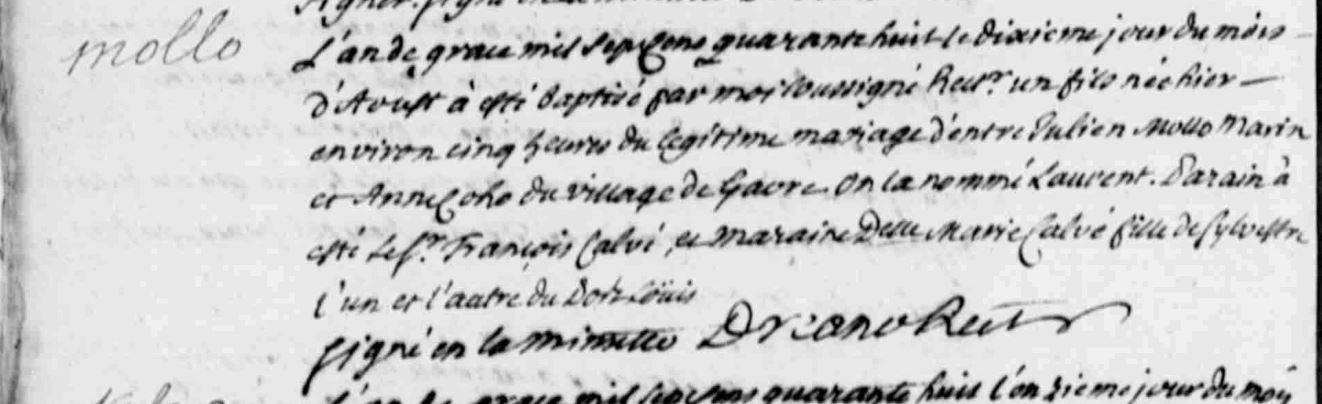 mollo
L'an de grace mil sept Cens quarante huit le dixieme jour du mois
d'Aoust à esté baptisé par moi soussigné Rectr. un fils né hier
environ cinq heures du legitime mariage d'entre Julien Mollo Marin
et Anne Coho du village de Gavre. On l'a nommé Laurent. Parain à
esté le Sr. François Calvé, et Maraine Delle Marie Calvé fille de Sylvestre
l'un et l'autre du Port Loüis
signé en la minutte Dreano Rectr
L'an de grace mil sept Cens quarante huit l'onzieme jour du moys